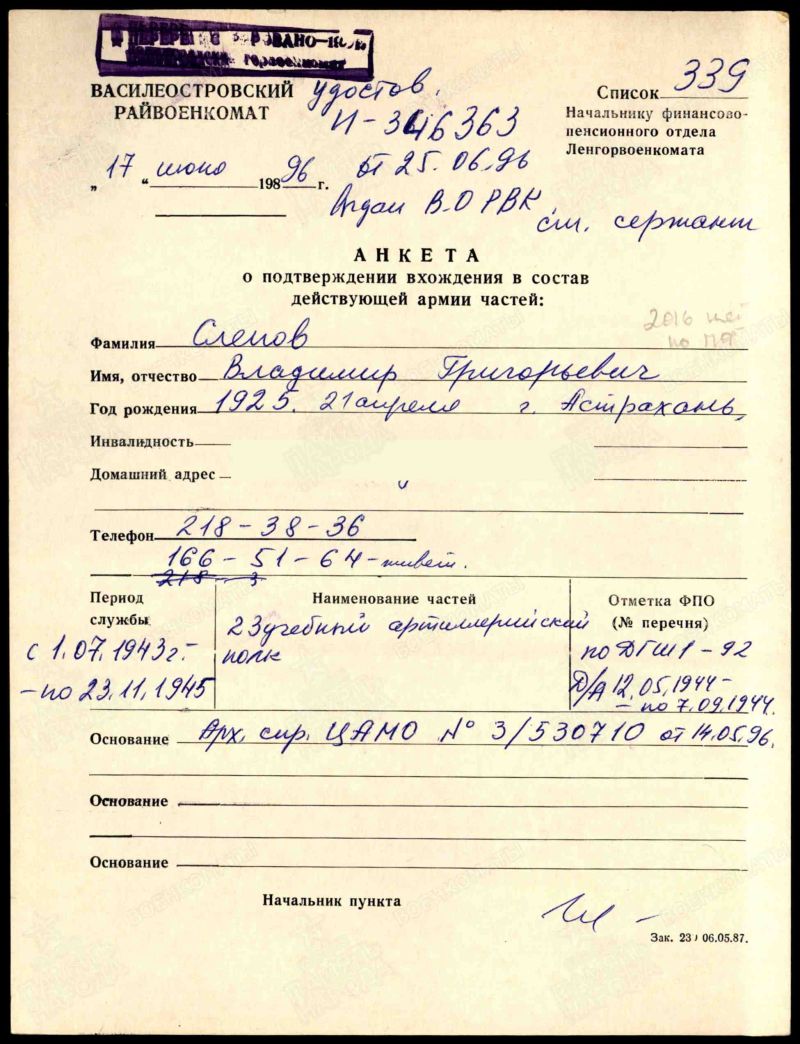 ПЕРЕРЕГИСТРИРОВАНО
горвоенкомат
ВАСИЛЕОСТРОВСКИЙ
РАЙВОЕНКОМАТ
удостов.
И-346363
от 25.06.96
Выдан В.О РВК
ст. сержант
Список 339
Начальнику финансово-
пенсионного отдела
Ленгорвоенкомата
„ 17 “ июня 198 96 г.
АНКЕТА
о подтверждении вхождения в состав
действующей армии частей:
2016
по
Фамилия Слепов
Имя, отчество Владимир Григорьевич
Год рождения 1925. 21 апреля г. Астрахань,
Инвалидность
Домашний адрес
Телефон 218-38-36
166-51-64-живет.
218 - 3
Период службы
Наименование частей
Отметка ФПО
(№ перечня)
с 1.07.1943г.-
-по 23.11.1945
23 учебный артиллерийский
полк
по ДГШ 1-92
Д/А 12.05.1944-
- по 7.09.1944.
Основание Арх. спр. ЦАМО № 3/530710 от 14.05.96.
Основание
Основание
Начальник пункта
Зак. 23 06.05.87.